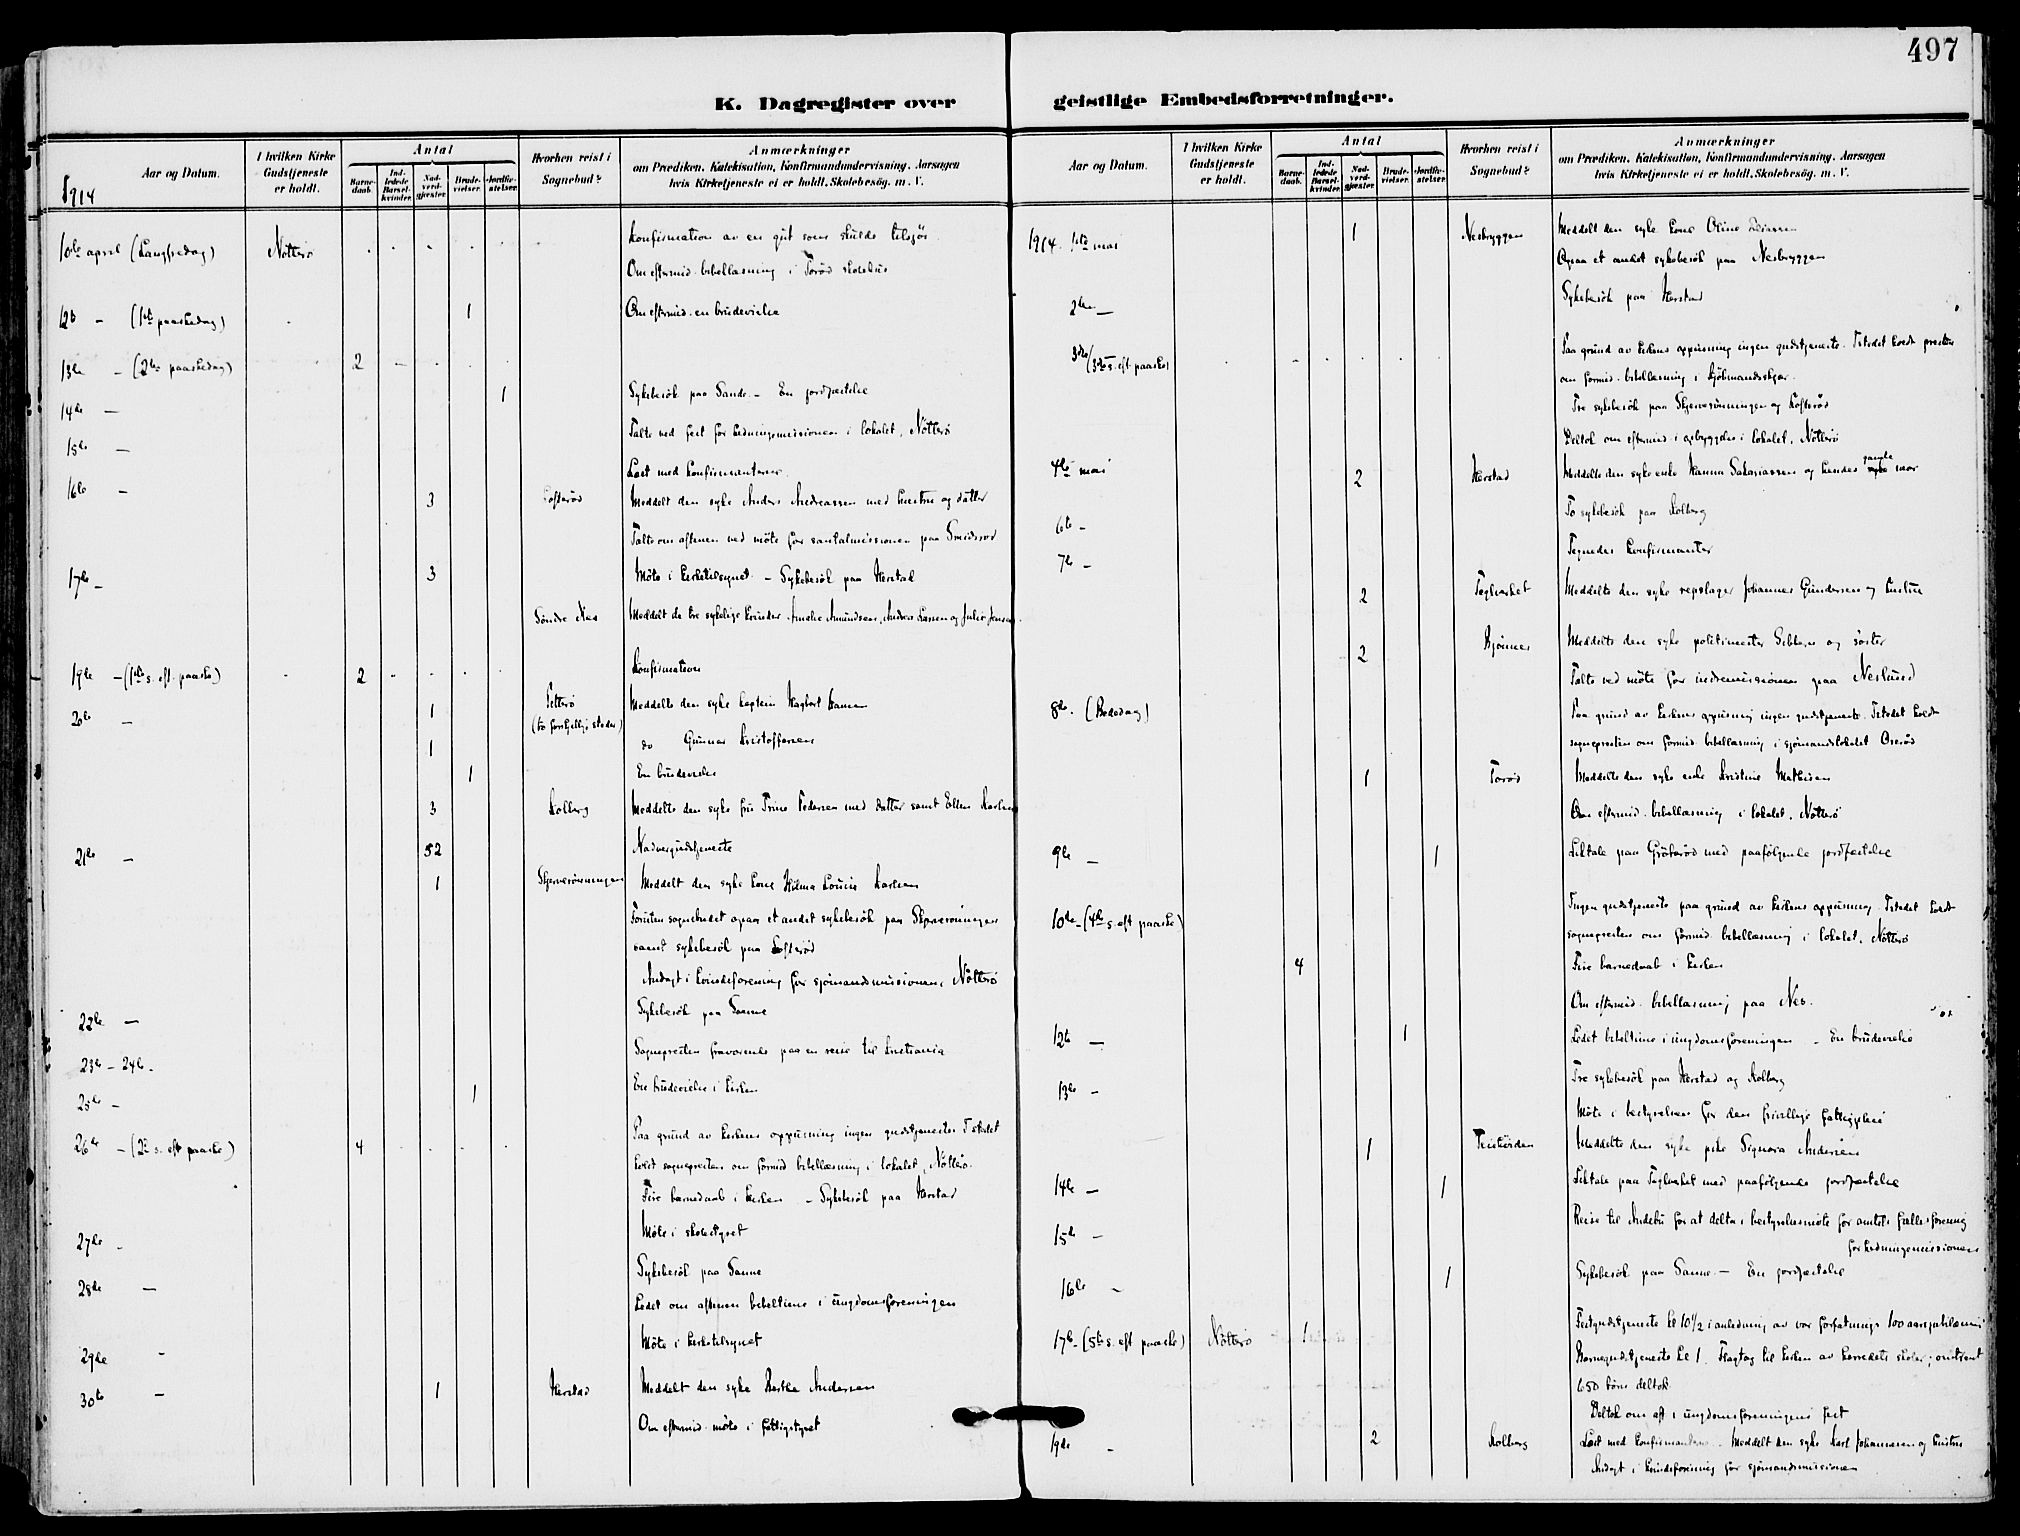 497
K. Dagregister over geistlige Embedsforretninger.
Aar og Datum.
I hvilken Kirke Gudstjeneste er holdt.
Antal
Barnedaab.
Indledede Barselkvinder.
Nadverdgjæster.
Brudevielser.
Jordfæstelser.
Hvorhen reist i Sognebud?
Anmærkninger
om Prædiken, Katekisation, Konfirmandundervisning, Aarsagen
hvis Kirketjeneste ei er holdt, Skolebesög, m. V.
1914
10de april (Langfredag) Nøtterø Konfirmation av en gut som skulde tilsjøs.
Om eftermid. bibellæsning i Torød skolehus
12te - (1ste paaskedag) 1 Om eftermid. en brudevielse
13de - (2den paaskedag) 2
14de - 1 Sykebesök paa Sande. - En jordfæstelse
15de - Talte ved fest for hedningemissionen i lokalet, Nøtterø
Læst med konfirmanterne.
16de - 3 Lofterød Meddelt den syke Anders Andreassen med hustru og datter
Talte om aftenen ved möte for santalmissionen paa Smidsrød
17de - 3 Möte i kirketilsynet. - Sykebesök paa Herstad
Søndre Nes Meddelt de tre sykelige kvinder Amalie Amundsen, Andrea Larsen og Julie Jensen.
19de - (1ste s. eft. paaske) 2 Konfirmation
20de - 1 (to forskjellige steder) Meddelte den syke kaptein Hagbart Hansen
1 do Gunnar Kristoffersen
1 En brudevielse
3 Kolberg Meddelte den syke fru Trine Pedersen med datter samt Ellen Karlsen
21de - 52 Nadvergudstjeneste
1 Skjerverønningen Meddelt den syke kone Hilma Louise Karlsen
Foruten sognebudet ogsaa et andet sykebesök paa Skjerverønningen
samt sykebesök paa Lofterød
Andagt i kvindeforening for sjømandsmissionen, Nøtterø
22de - Sykebesök paa Sanne
23de - 24de - Sognepresten fraværende paa en reise til Kristiania
25de - 1 En brudevielse i kirken
26de - (2den s. eft. paaske) 4 Paa grund av kirkens oppusning ingen gudstjeneste. Istedet
holdt sognepresten om formid. bibellæsning i lokalet, Nøtterø.
Fire barnedaab i kirken - Sykebesök paa Herstad
27de - Möte i skolestyret
28de - Sykebesök paa Sanne
Ledet om aftenen bibeltime i ungdomsforeningen
29de - Möte i kirketilsynet
30te - 1 Herstad Meddelt den syke Berthe Andersen
Om eftermid. möte i fattigstyret
Aar og Datum.
I hvilken Kirke Gudstjeneste er holdt.
Antal
Barnedaab.
Indledede Barselkvinder.
Nadverdgjæster.
Brudevielser.
Jordfæstelser.
Hvorhen reist i Sognebud?
Anmærkninger
om Prædiken, Katekisation, Konfirmandundervisning, Aarsagen
hvis Kirketjeneste ei er holdt, Skolebesög, m. V.
1914. 1ste mai 1 Nesbryggen Meddelt den syke kone Oline
Ogsaa et andet sykebesök paa Nesbryggen
2den - Sykebesök paa Herstad
3die (3die s. eft. paaske) Paa grund av kirkens oppusning ingen gudstjeneste. Istedet holdt presten
om formid. bibellæsning i Kjøbmandsskjær.
Tre sykebesök paa Skjerverønningen og Lofterød
Deltok om eftermid. i opbyggelse i lokalet, Nøtterø
4de mai 2 Herstad Meddelte den syke enke Hanna Sakariassen og hendes gamle mor
6te - To sykebesök paa Kolberg
7de - Tegnedes konfirmanter
2 Teglverket Meddelte den syke repslager Johannes Gundersen og hustru
2 Bjønnes Meddelte den syke politimester og søster
Talte ved möte for indremissionen paa Neslund
8de. (Bededag) Paa grund av kirkens oppusning ingen gudstjeneste. Istedet holdt
sognepresten om formid. bibellæsning i sjømandslokalet Oserød
1 Torød Meddelte den syke enke Kristine Mathisen
Om eftermid. bibellæsning i lokalet, Nøtterø
9de - 1 Liktale paa Gröterød med paafölgende jordfæstelse
10de - (4de s. eft. paaske) Ingen gudstjeneste paa grund av kirkens oppusning. Istedet holdt
sognepresten om formid. bibellæsning i lokalet, Nøtterø
4 Fire barnedaab i kirken
Om eftermid. bibellæsning paa Nes.
12te - 1 Ledet bibeltime i ungdomsforeningen - En brudevielse
13de - Tre sykebesök paa Herstad og Kolberg
Möte i bestyrelsen for den frivillige fattigpleie
1 Meddelte den syke pike Signora Andersen
14de - 1 Liktale paa Teglverket med paafölgende jordfæstelse
15de - Reise til Andebu for at delta i bestyrelsesmöte for amtets fællesforening
for hedningemissionen
16de - 1 Sykebesök paa Sanne. - En jordfæstelse
17de - (5te s. eft. paaske) Nøtterø 1 Festgudstjeneste kl 10 1/2 i anledning av vor forfatnings 100 aarsjubilæum
Barnegudstjeneste kl 1. Flagtog til kirken av herredets skoler; omtrent
650 börn deltok
Deltok om aft. i ungdomsforeningens fest
19de - 2 Kolberg Læst med konfirmanterne. Meddelt den syke Karl Johannesen og hustru
Andagt i kvindeforening for sjømandsmissionen